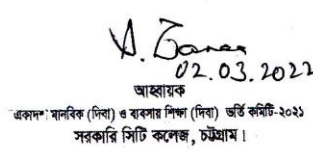 02.03.2022
আহ্বায়ক
একাদশ: মানবিক (দিবা) ও ব্যবসায় শিক্ষা (দিবা) ভর্তি কমিটি-২০২১
সরকারি সিটি কলেজ, চট্টগ্রাম।